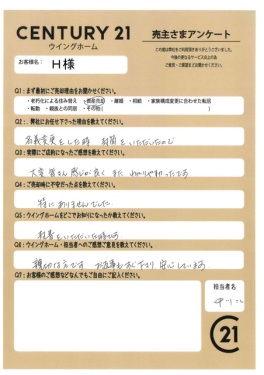 CENTURY 21
ウイングホーム
売主さまアンケート
この度は弊社をご利用頂きありがとうございました。
今後の更なるサービス向上の為
ご意見・ご感想をご記載をお聞かせください。
お客様名：
H様
Q1：まず最初にご売却理由をお聞かせください。
・老朽化による住み替え ・資産売却 ・離婚 ・相続 ・家族構成変更に合わせた転居
・転勤 ・親族との同居 ・その他( )
Q2：弊社にお任せ下さった理由を教えてください。
名義変更をした時 封筒をいただいたので
Q3：実際にご成約になったご感想を教えてください。
大変 皆さん感じが良く また わかりやすかったです
Q4：ご売却時に不安だった点を教えてください。
特にありませんでした
Q5：ウイングホームをどこでお知りになったか教えてください。
封書をいただいた時です
Q6：ウイングホーム・担当者へのご感想ご意見を教えてください。
親切な方です お返事もすぐ下さり 安心しています
Q7：お客様のご感想などなんでもご自由にご記入ください。
担当者名
C21